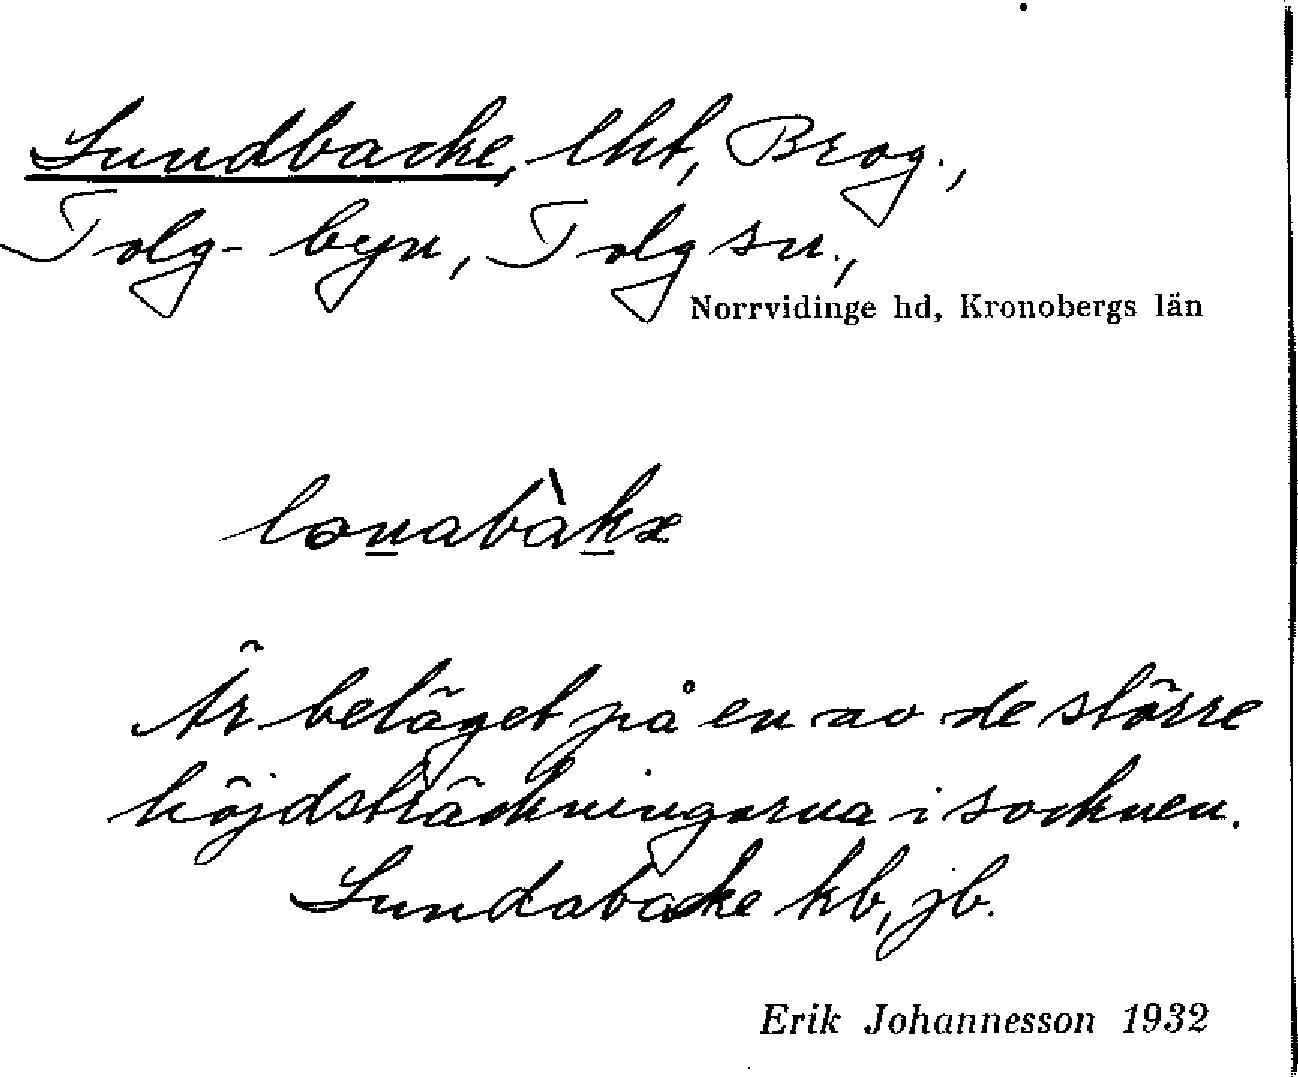 Lundbacke, lht, Brog.,
Tolg-byn, Tolg sn.,
Norrvidinge hd, Kronobergs län
lɷnabàkæ
Är beläget på en av de större
höjdsträckningarna i socknen.
Lundabacke kb, jb.
Erik Johannesson 1932